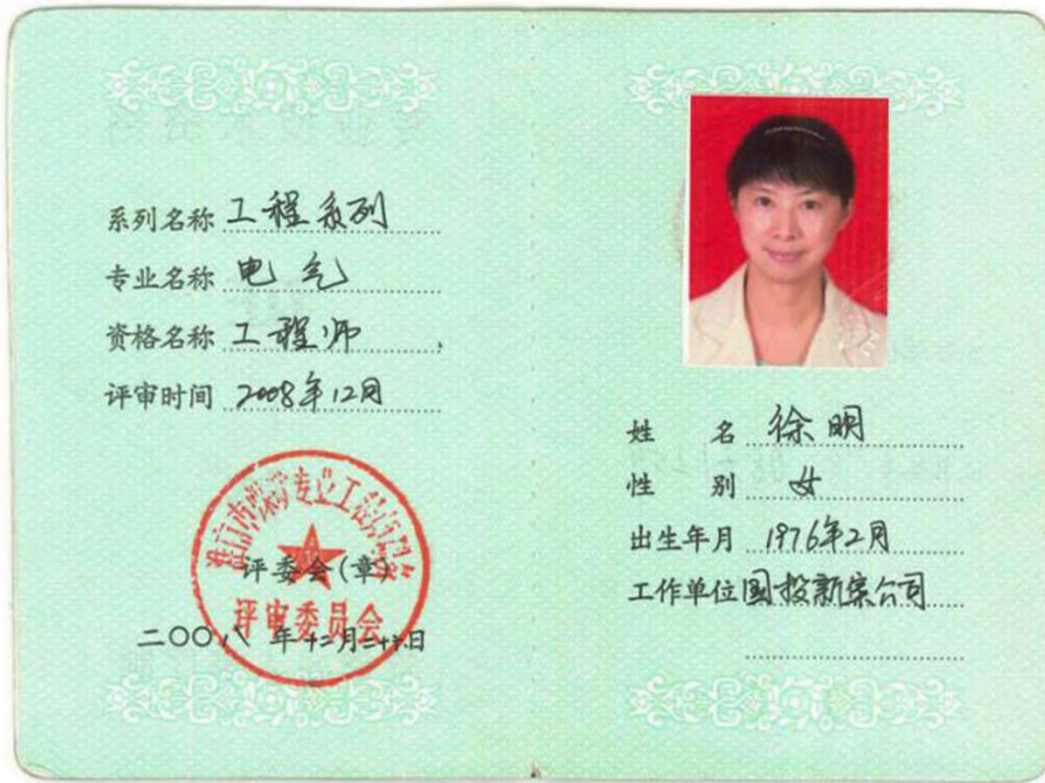 系列名称 工程系列
专业名称 电气
资格名称 工程师
评审时间 2008年12月
专业工程
评委会(章)
评审委员会
二〇〇八年十二月二十六日
姓 名 徐明
性 别 女
出生年月 1976年2月
工作单位 国投新集公司